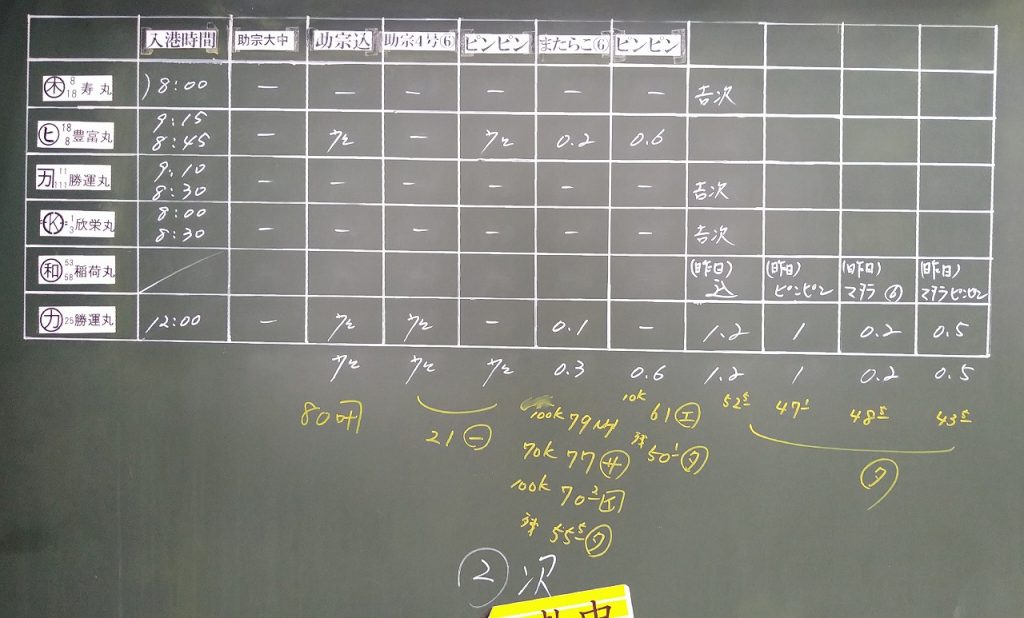 入港時間 助宗大中 助宗込 助宗4号⑥ ピンピン またらこ⑥ ピンピン
㊍ 8 18 寿丸 8:00 — — — — — — 吉次
ヒ 18 8 豊富丸 9:15 8:45 — — 0.2 0.6
カ 11 111 勝運丸 9:10 8:30 — — — — — — 吉次
K 1 3 欣栄丸 8:00 8:30 — — — — — — 吉次
和 53 58 稲荷丸 (昨日) 込 (昨日) ピンピン (昨日) マダラ⑥ (昨日) マダラピンピン
カ 25 勝運丸 12:00 — 0.1 — 1.2 1 0.2 0.5
0.3 0.6 1.2 1 0.2 0.5
80叶 100k 79 10k 61 エ 52⁵ 47¹ 48⁵ 43⁵
21 一 70k 77 サ 残 50¹ ク ク
100k 70²
残 55⁵ ク
② 次
中